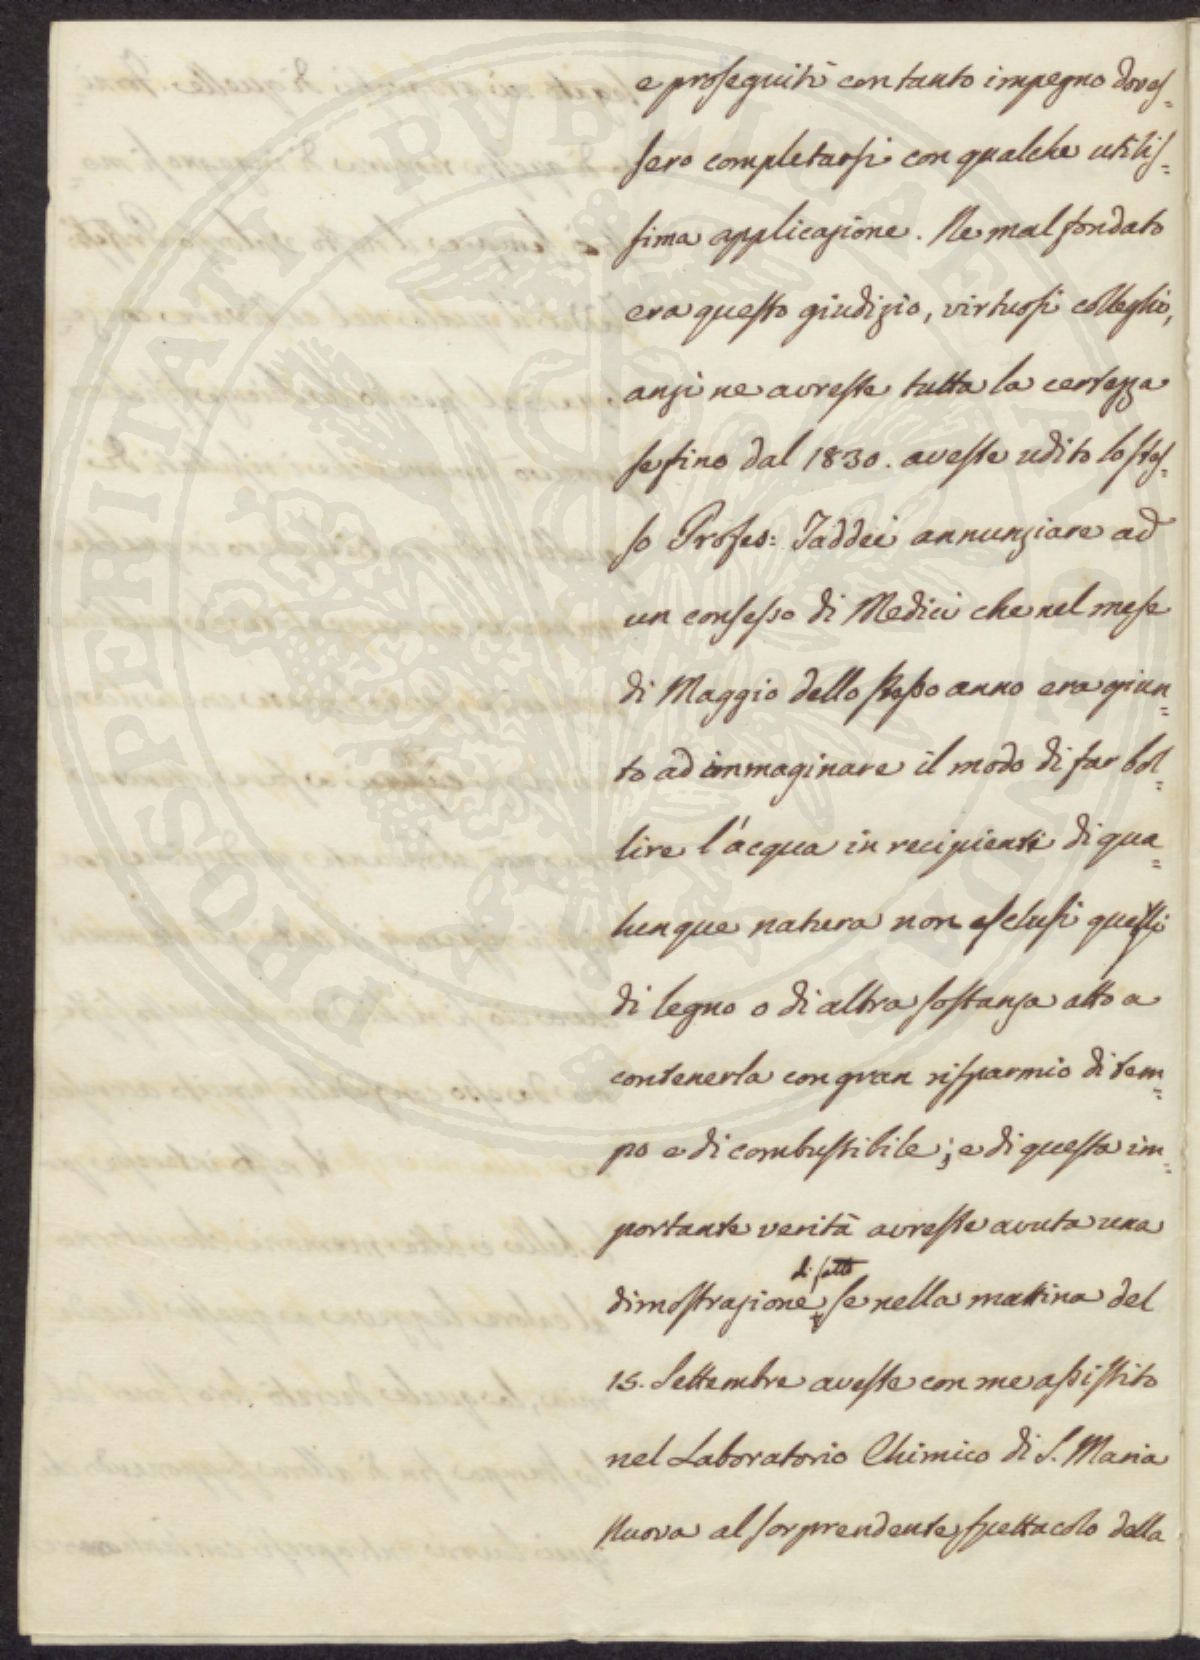 e proseguiti con tanto impegno doves=
sero completarsi con qualche utilis=
sima applicazione. Ne mal fondato
era questo giudizio, virtuosi colleghi,
anzi ne avreste tutta la certezza
se fino dal 1830. aveste udito lo stes=
so Profes: Taddei annunziare ad
un consesso di Medici che nel mese
di Maggio dello stesso anno era giun=
to ad immaginare il modo di far bol=
lire l'acqua in recipienti di qua=
lunque natura non esclusi quelli
di legno o di altra sostanza atto a
contenerla con gran risparmio di tem=
po e di combustibile; e di questa im=
portante verità avreste avuta una
di fatto
dimostrazione, se nella mattina del
15. Settembre aveste con me assistito
nel Laboratorio Chimico di S. Maria
Nuova al sorprendente spettacolo della
PROSPERITATI PUBLICAE AUGENDAE